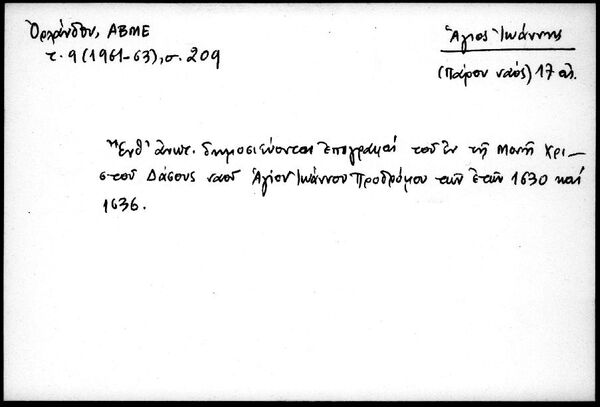 Ὀρλάνδου, ΑΒΜΕ
τ. 9 (1961-63), σ. 209
Ἅγιος Ἰωάννης
(Πάρου ναός) 17 αἰ.
Ἔνθ' ἀνωτ. δημοσιεύονται ἐπιγραφαί τοῦ ἐν τῇ Μονῇ Χρι-
στοῦ Δάσους ναοῦ Ἁγίου Ἰωάννου Προδρόμου τῶν ἐτῶν 1630 καί
1636.